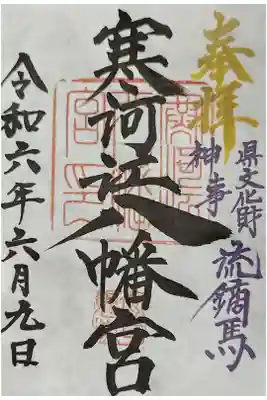 奉拝
県文化財
神事 流鏑馬
寒河江八幡宮
令和六年六月九日